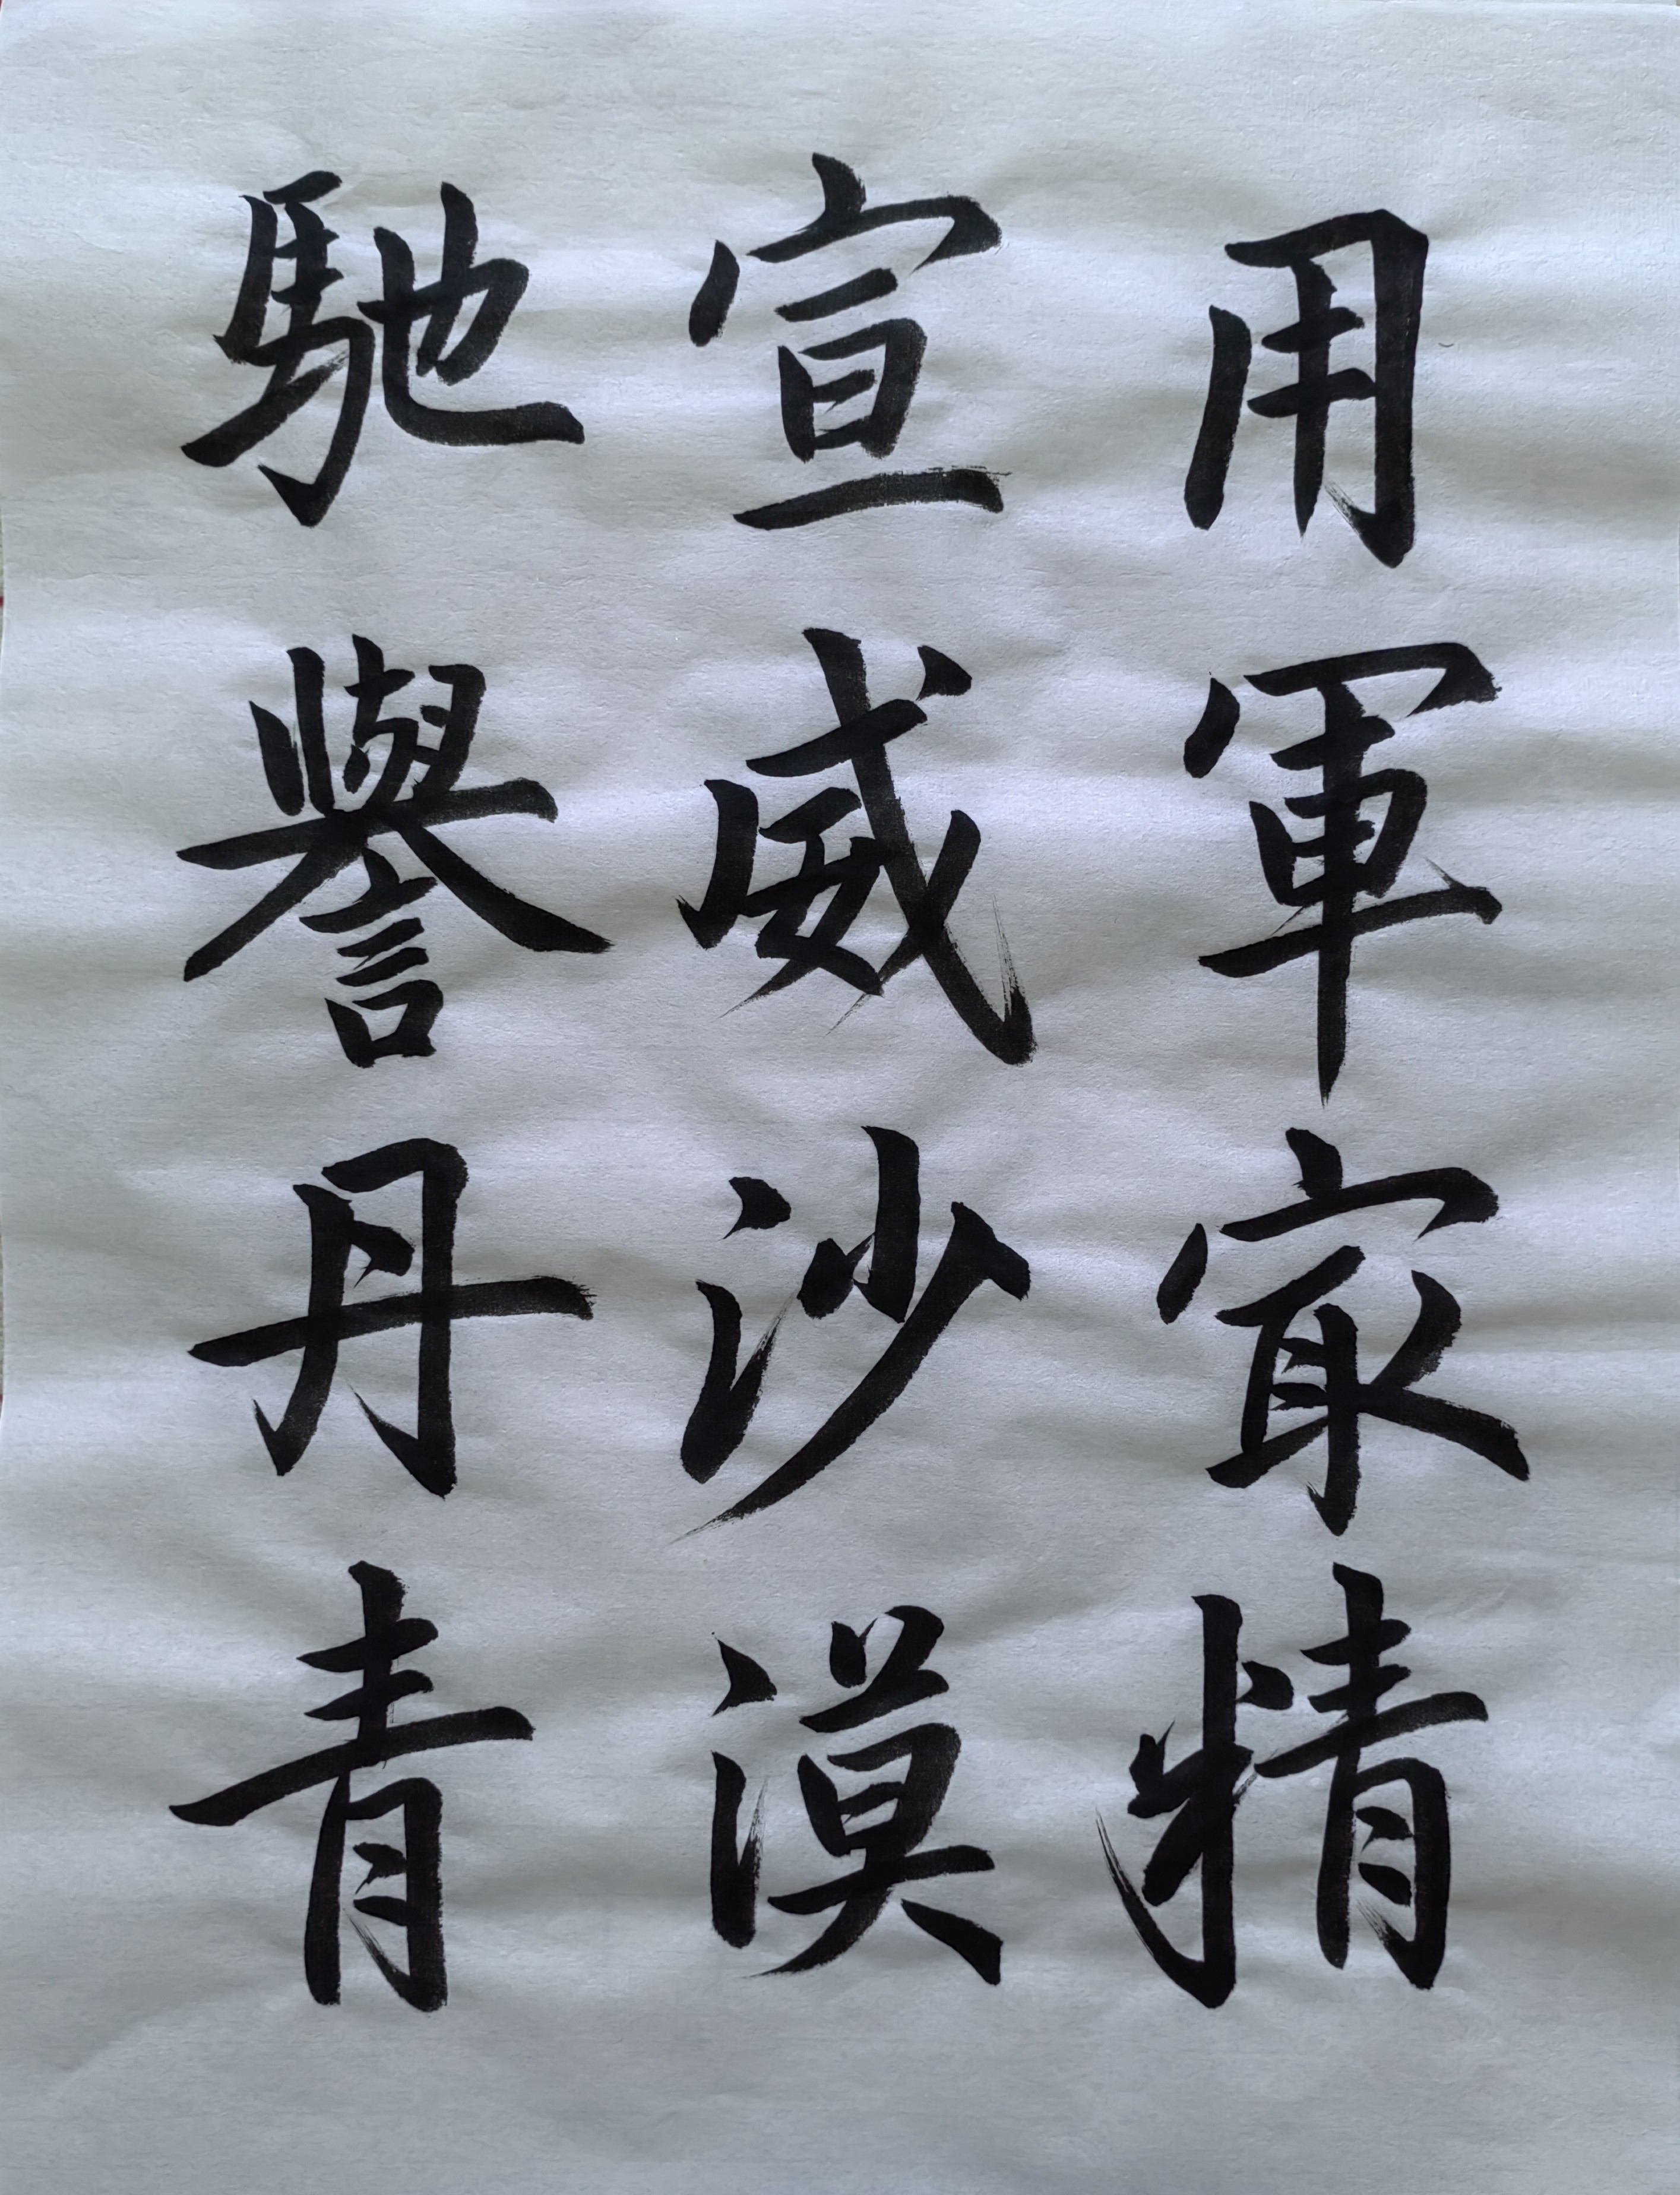 用軍㝡精
宣威沙漠
馳譽丹青